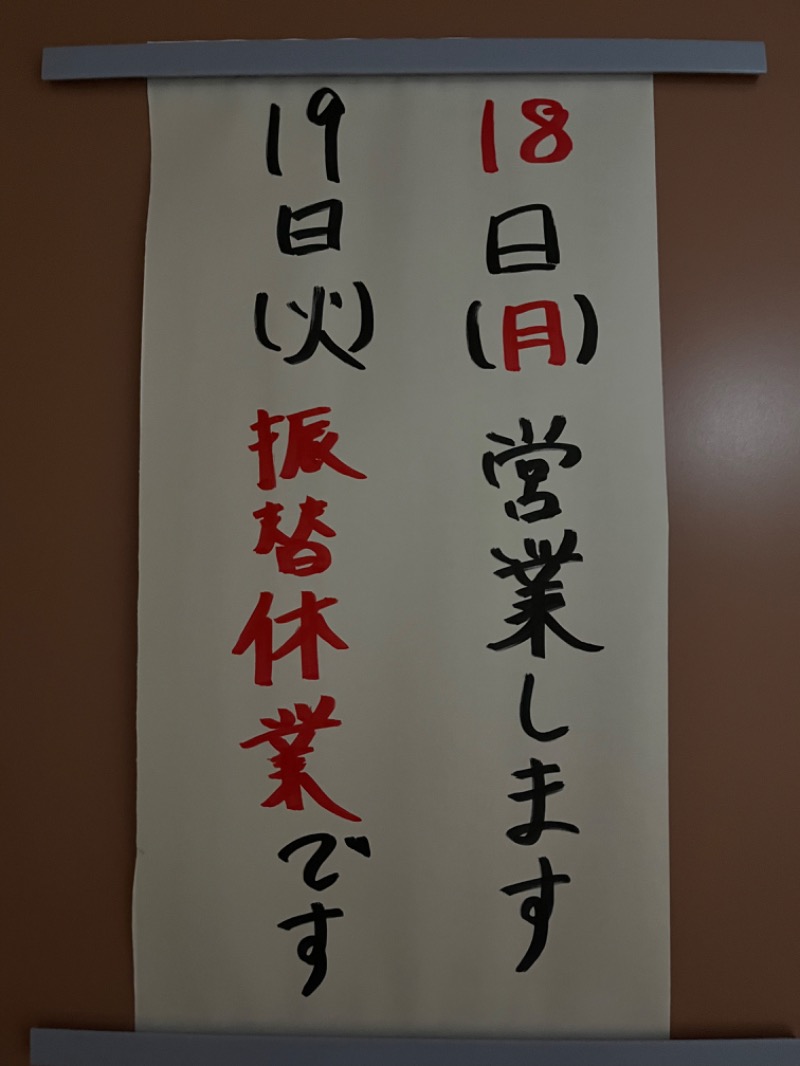 18日(月)営業します
19日(火)振替休業です